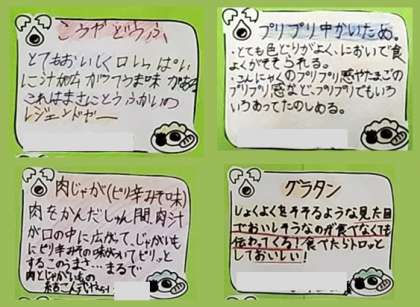 こうやどうふ
とてもおいしく口いっぱい
に汁が
これはまさにとうふかいの
レジェンドやー
プリプリ中かいため。
・とても色どりがよく、においで食
よくがそそられる。
・こんにゃくのプリプリ感やたまごの
プリプリ感など、プリプリでもいろ
いろあってたのしめる。
肉じゃが(ピリ辛みそ味)
肉をかんだしゅん間、肉汁
が口の中に広がって、じゃがいも
にピリ辛みその味がついてピリッと
するこのうまさ…まるで
肉とじゃがいもの
グラタン
しょくよくをそそるような見た目
でおいしそうなのが食べなくても
伝わってくる!食べてたらトロッと
しておいしい!